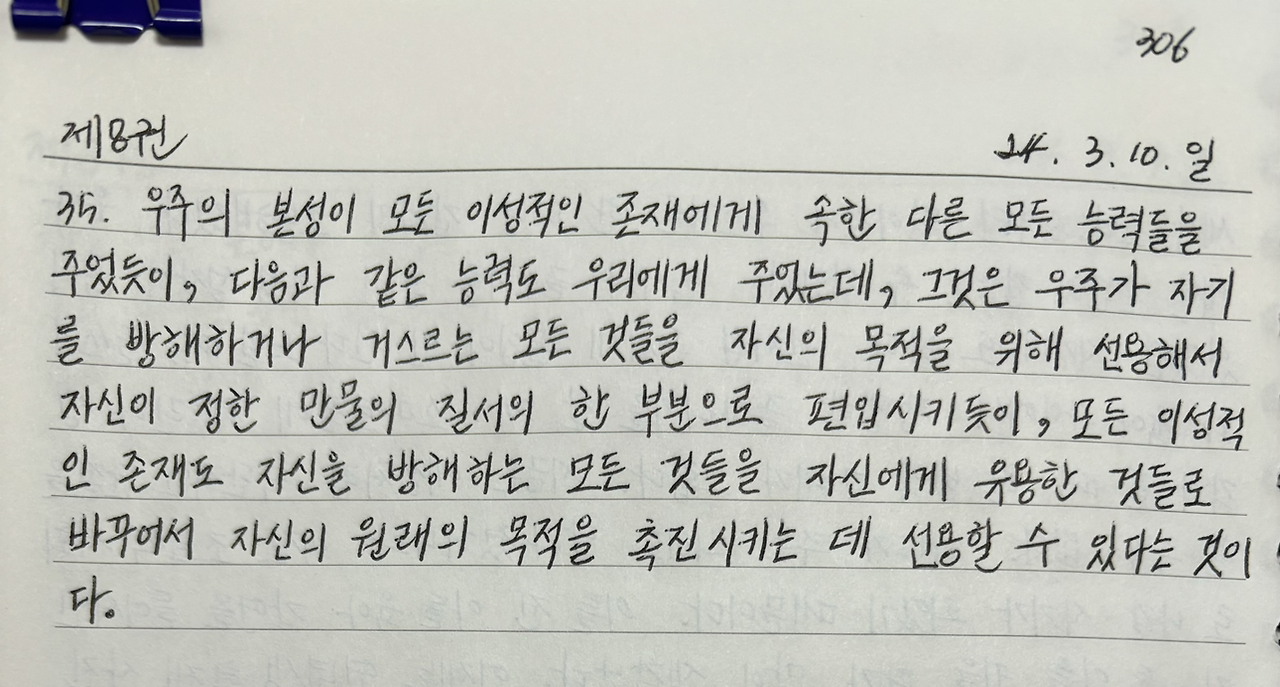 306
제8권 24. 3. 10. 일
35. 우주의 본성이 모든 이성적인 존재에게 속한 다른 모든 능력들을
주었듯이, 다음과 같은 능력도 우리에게 주었는데, 그것은 우주가 자기
를 방해하거나 거스르는 모든 것들을 자신의 목적을 위해 선용해서
자신이 정한 만물의 질서의 한 부분으로 편입시키듯이, 모든 이성적
인 존재도 자신을 방해하는 모든 것들을 자신에게 유용한 것들로
바꾸어서 자신의 원래의 목적을 촉진시키는 데 선용할 수 있다는 것이
다.